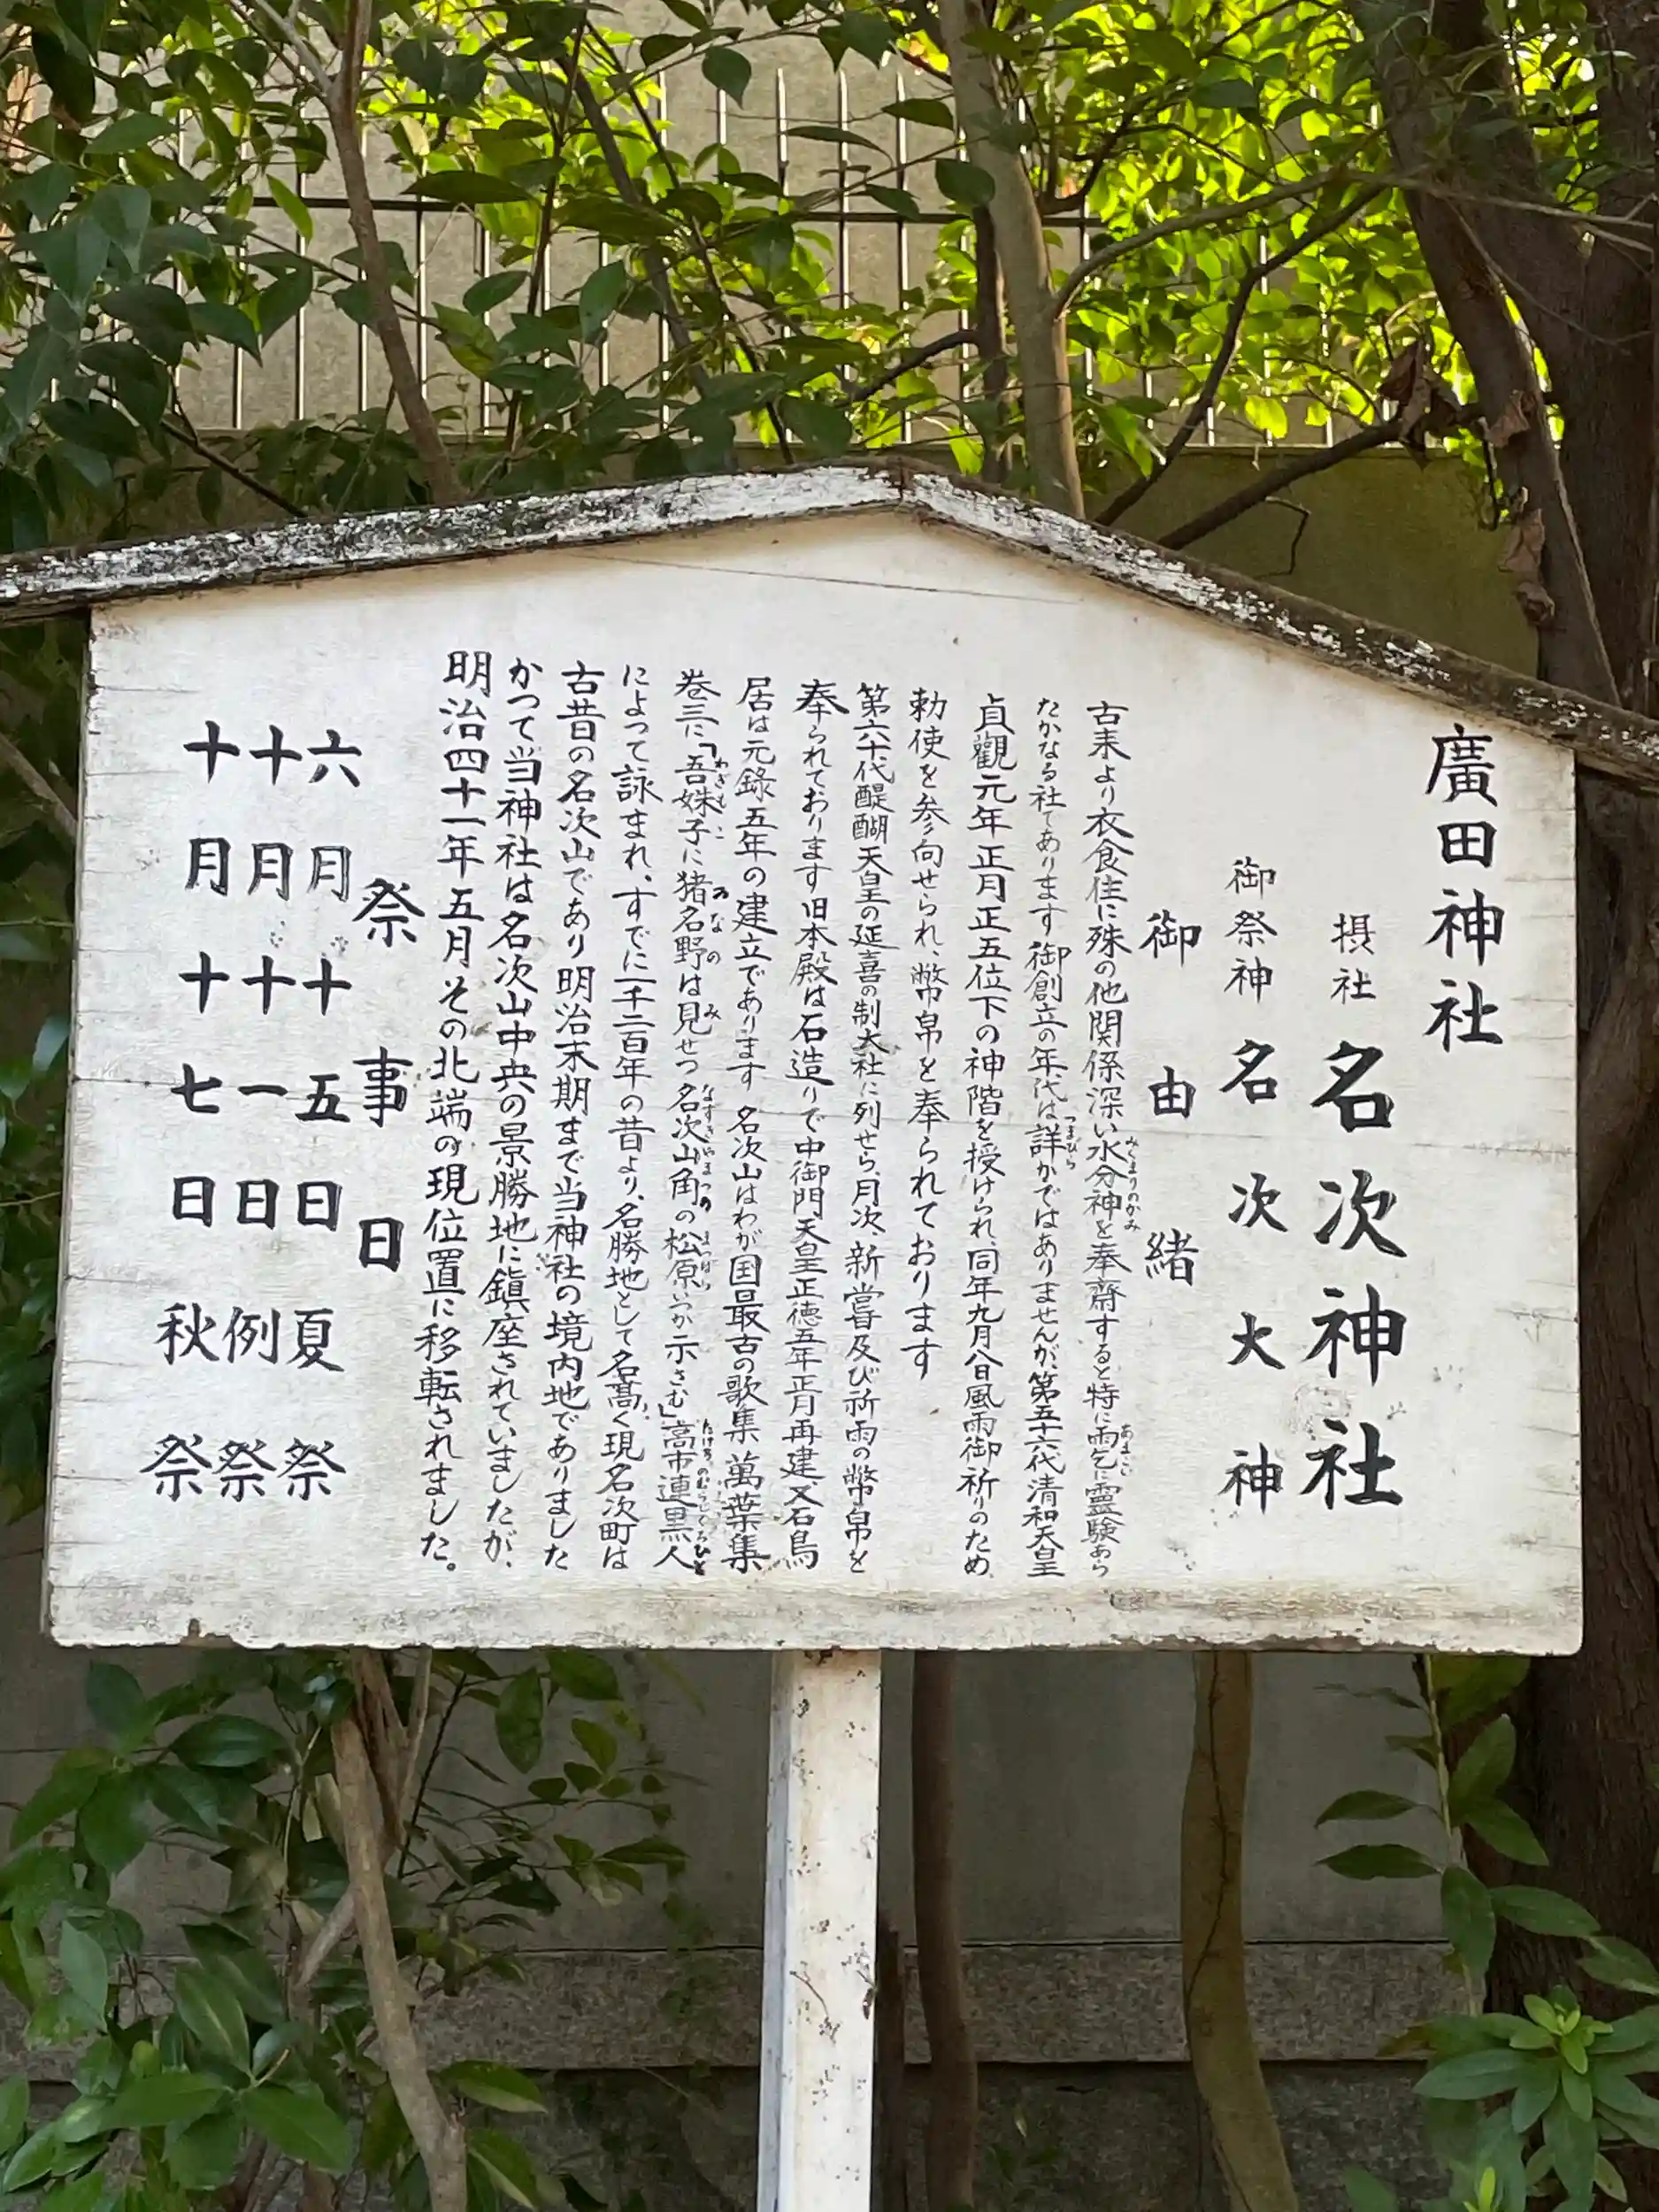 廣田神社
摂社 名次神社
御祭神 名次大神
御由緒
古来より衣食住に殊の他関係深い水分神を奉齋すると特に雨乞に霊験あら
たかなる社であります御創立の年代は詳かではありませんが、第五十六代清和天皇
貞觀元年正月正五位下の神階を授けられ、同年九月八日風雨御祈りのため、
勅使を参向せられ、幣帛を奉られております
第六十代醍醐天皇の延喜の制大社に列せら、月次、新嘗及び祈雨の幣帛を
奉られております旧本殿は石造りで中御門天皇正徳五年正月再建、又石鳥
居は元録五年の建立であります 名次山はわが国最古の歌集 萬葉集
巻三に「吾姝子に猪名野は見せつ名次山角の松原いつか示さむ」高市連黒人
によって詠まれ、すでに一千二百年の昔より、名勝地として名髙く現名次町は
古昔の名次山であり明治末期まで当神社の境内地でありました
かつて当神社は名次山中央の景勝地に鎮座されていましたが、
明治四十一年五月その北端の現位置に移転されました。
祭事日
六月十五日夏祭
十月十一日例祭
十月十七日秋祭